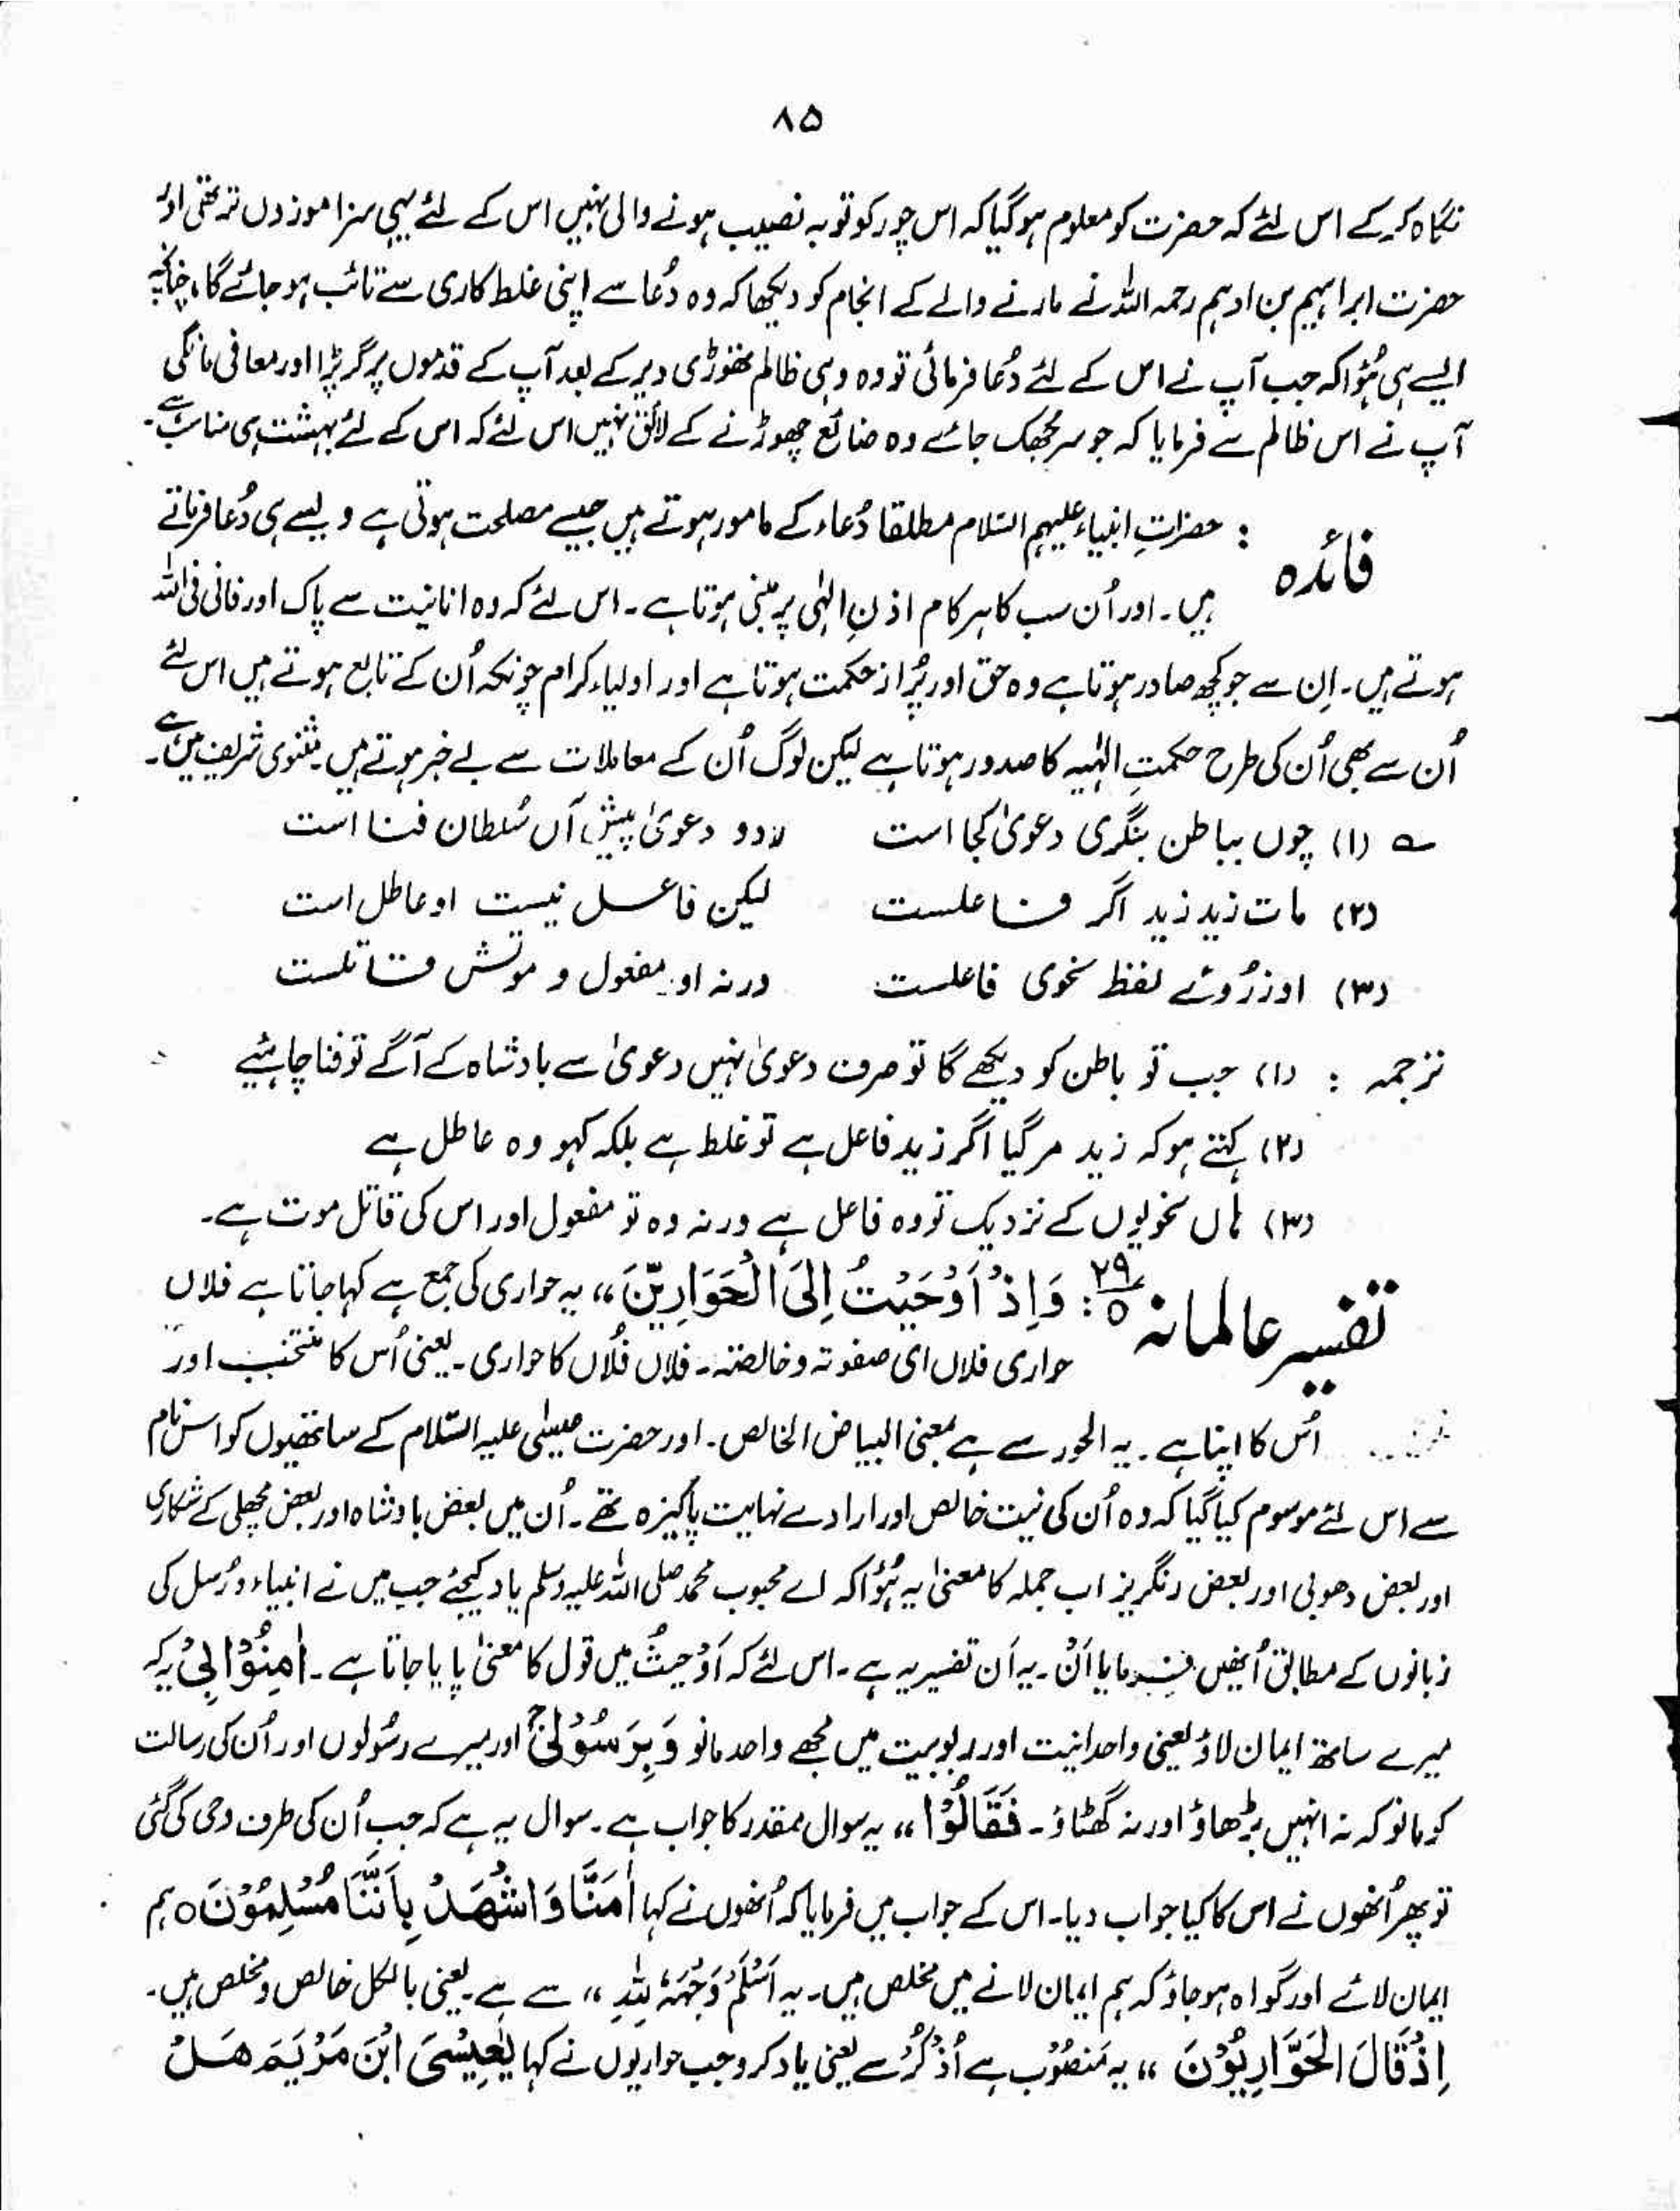 ۸۵
نگاہ کر کے اس لئے کہ حضرت کو معلوم ہو گیا کہ اس چور کو توبہ نصیب ہونے والی نہیں اس کے لئے یہی سزا موزوں تر تھی اور
حضرت ابراہیم بن ادہم رحمہ اللہ نے مارنے والے کے انجام کو دیکھا کہ وہ دُعا سے اپنی غلط کاری سے تائب ہو جائے گا، چنانچہ
ایسے ہی ہُؤا کہ جب آپ نے اس کے لئے دُعا فرمائی تو وہ وہی ظالم تھوڑی دیر کے بعد آپ کے قدموں پر گر پڑا اور معافی مانگی
آپ نے اس ظالم سے فرمایا کہ جو سر جُھک جائے وہ ضائع چھوڑنے کے لائق نہیں اس لئے کہ اس کے لئے بہشت ہی مناسب ہے۔
فائدہ : حضراتِ انبیاء علیہم السّلام مطلقا دُعاء کے مامور ہوتے ہیں جیسے مصلحت ہوتی ہے ویسے ہی دُعا فرماتے
ہیں۔ اور اُن سب کا ہر کام اذنِ الٰہی پر مبنی ہوتا ہے۔ اس لئے کہ وہ انانیت سے پاک اور فانی فی اللہ
ہوتے ہیں۔ اِن سے جو کچھ صادر ہوتا ہے وہ حق اور پُر از حکمت ہوتا ہے اور اولیاء کرام چونکہ اُن کے تابع ہوتے ہیں اس لئے
اُن سے بھی اُن کی طرح حکمتِ الٰہیہ کا صدور ہوتا ہے لیکن لوگ اُن کے معاملات سے بے خبر ہوتے ہیں۔ مثنوی شریف میں ہے۔
؎ (۱) چوں بباطن بنگری دعویٰ کجا است دعویٰ پیش آں سُلطان فنا است
(۲) مات زید زید اگر فاعلست لیکن فاعل نیست او عاطل است
(۳) او ز رُوئے لفظ نحوی فاعلست ورنہ او مفعول و موتش قاتلست
ترجمہ : (۱) جب تو باطن کو دیکھے گا تو صرف دعویٰ نہیں دعویٰ سے بادشاہ کے آگے تو فنا چاہئیے
(۲) کہتے ہو کہ زید مر گیا اگر زید فاعل ہے تو غلط ہے بلکہ کہو وہ عاطل ہے
(۳) ہاں نحویوں کے نزدیک تو وہ فاعل ہے ورنہ وہ تو مفعول اور اس کی قاتل موت ہے۔
تفسیر عالمانہ ۲۹ ع ۵ : وَاِذْ اَوْحَیْتُ اِلَی الْحَوَارِیّٖنَ ،، یہ حواری کی جمع ہے کہا جاتا ہے فلاں
حواری فلاں ای صفوتہ و خالصتہ۔ فلاں فلُاں کا حواری۔ یعنی اُس کا منتخب اور
اُس کا اپنا ہے۔ یہ الحور سے ہے بمعنی البیاض الخالص۔ اور حضرت عیسٰی علیہ السّلام کے ساتھیوں کو اس نام
سے اس لئے موسوم کیا گیا کہ وہ اُن کی نیت خالص اور ارادے نہایت پاکیزہ تھے۔ اُن میں بعض بادشاہ اور بعض مچھلی کے شکاری
اور بعض دھوبی اور بعض رنگریز اب جملہ کا معنیٰ یہ ہُؤا کہ اے محبوب محمد صلی اللہ علیہ وسلم یاد کیجئے جب میں نے انبیاء و رُسل کی
زبانوں کے مطابق اُنھیں فرمایا اَنْ۔ یہ اَن تفسیریہ ہے۔ اس لئے کہ اَوْحیتُ میں قول کا معنیٰ پایا جاتا ہے۔ اٰمِنُوْا بِیْ یہ کہ
میرے ساتھ ایمان لاؤ یعنی واحدانیت اور ربوبیت میں مجھے واحد مانو وَ بِرَسُوْلِیْ اور میرے رسُولوں اور اُن کی رسالت
کو مانو کہ نہ انہیں بڑھاؤ اور نہ گھٹاؤ۔ فَقَالُوْا ،، یہ سوال مقدر کا جواب ہے۔ سوال یہ ہے کہ جب اُن کی طرف وحی کی گئی
تو پھر اُنھوں نے اس کا کیا جواب دیا۔ اس کے جواب میں فرمایا کہ اُنھوں نے کہا اٰمَنَّا وَاشْهَدْ بِاَنَّنَا مُسْلِمُوْنَ ہ ہم
ایمان لائے اور گواہ ہو جاؤ کہ ہم ایمان لانے میں مخلص ہیں۔ یہ اَسْلَمَ وَجْهَهٗ لِلهِ ،، سے ہے۔ یعنی بالکل خالص و مخلص ہیں۔
اِذْ قَالَ الْحَوَّارِیُوْنَ ،، یہ مَنصُوْب ہے اُذْکُرْ سے یعنی یاد کرو جب حواریوں نے کہا یٰعِیْسَی ابْنَ مَرْیَمَ هَلْ